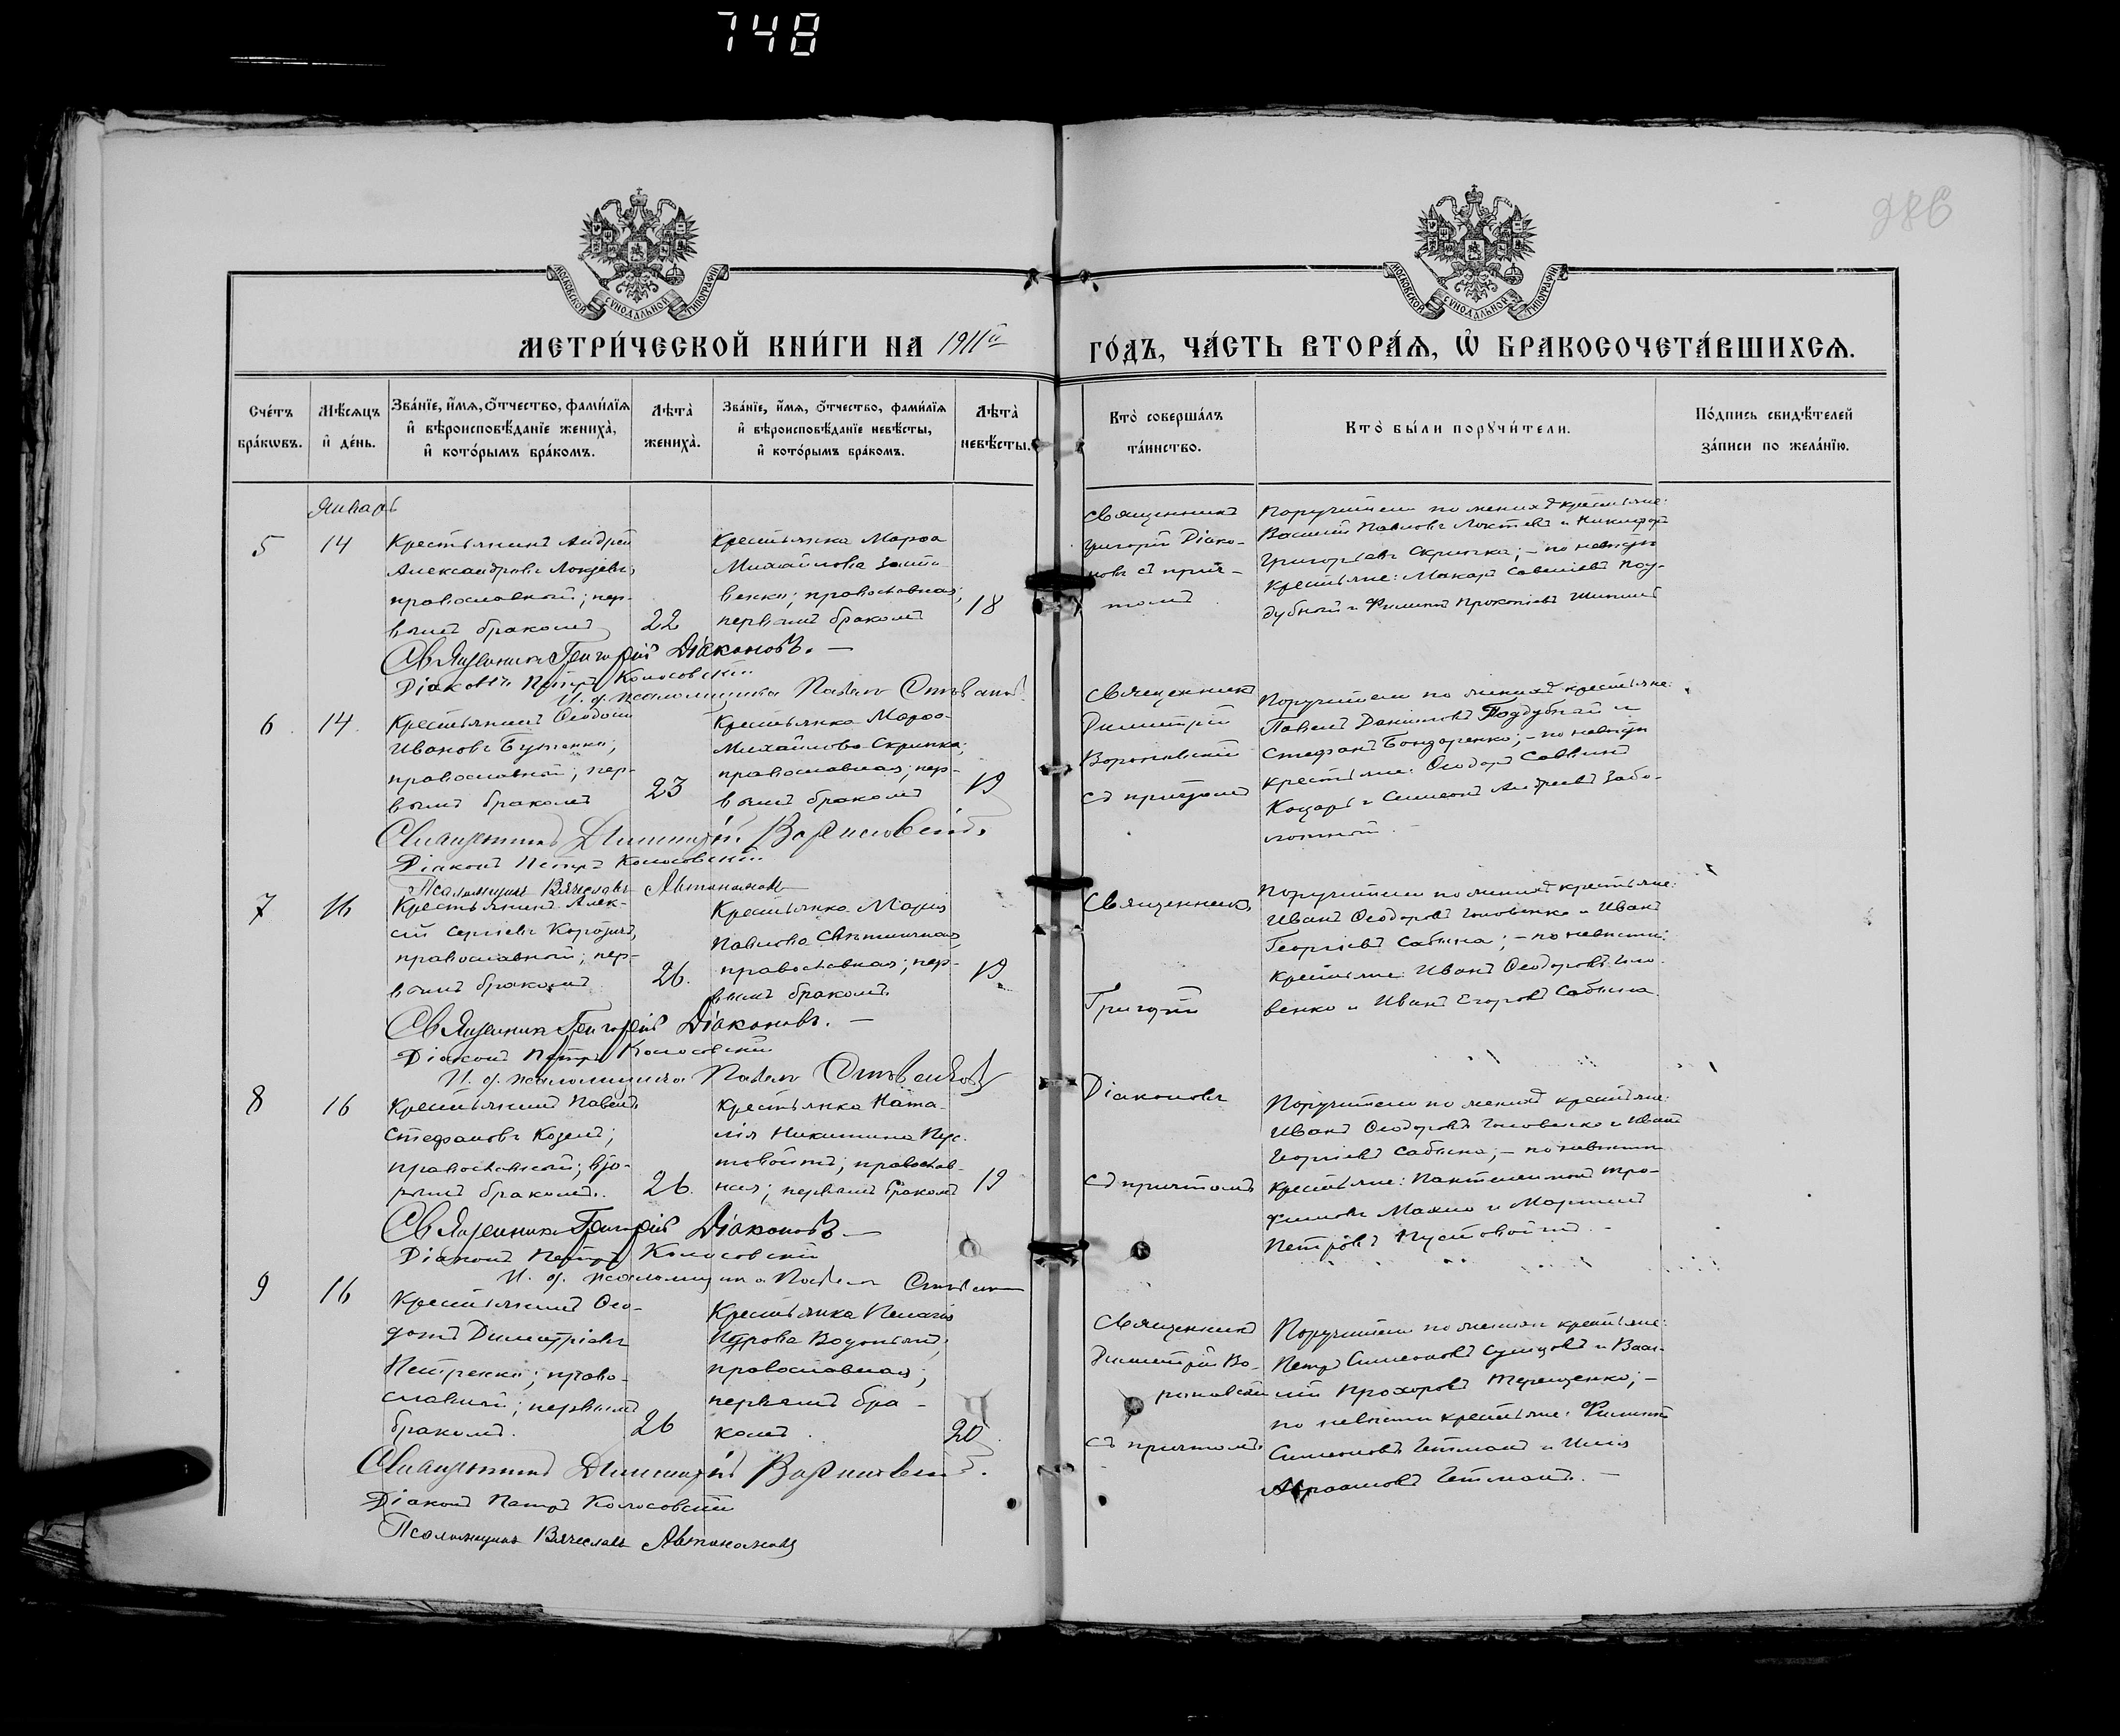 748
286
МОСКОВСКОЙ СѴНОДАЛЬНОЙ ТИПОГРАФІИ
МОСКОВСКОЙ СѴНОДАЛЬНОЙ ТИПОГРАФІИ
МЕТРИ́ЧЕСКОЙ КНИ́ГИ НА 1911й ГО́ДЪ, ЧА́СТЬ ВТОРА́Ѧ, Ѽ БРАКОСОЧЕТА́ВШИХСѦ.
Сче́тъ бра́кѡвъ.
Мѣ́сяцъ и҆ де́нь.
Зва́нїе, и҆́мѧ, ѻ҆́тчество, фами́лїѧ и҆ вѣроисповѣ́данїе жениха̀, и҆ кото́рымъ бра́комъ.
Лѣ́та̀ жениха̀.
Зва́нїе, и҆́мѧ, ѻ҆́тчество, фами́лїѧ и҆ вѣроисповѣ́данїе невѣ́сты, и҆ кото́рымъ бра́комъ.
Лѣ́та̀ невѣ́сты.
Кто̀ соверша́лъ та́инство.
Кто̀ бы́ли порꙋчи́тели.
По́дпись свидѣ́телей за́писи по жела́нїю.
Январь
5
14
Крестьянинъ Андрей
Александровъ
православный; пер-
вымъ бракомъ
22
Крестьянка Марѳа
Михайлова
православная;
первымъ бракомъ
18
Священникъ
Григорій Діако-
новъ съ прич-
томъ
Поручители по женихѣ крестьяне:
Василій Павловъ Локтевъ и Никифоръ
Григорьевъ Скрипка; – по невѣстѣ
крестьяне: Макаръ Савельевъ Под-
дубный и Филиппъ Прокопіевъ
Священникъ Григорій Діаконовъ. —
Діаконъ Петръ Колосовскій
И. д. псаломщика Павелъ
6
14.
Крестьянинъ Ѳеодосій
Ивановъ Бутенко;
православный; пер-
вымъ бракомъ
23
Крестьянка Марѳа
Михайлова Скрипка;
православная; пер-
вымъ бракомъ
19
Священникъ
Димитрій
съ причтомъ
Поручители по женихѣ крестьяне:
Павелъ Даниловъ Поддубный и
Стефанъ Бондаренко; – по невѣстѣ
крестьяне: Ѳеодоръ Саввинъ
Коцарь и Симеонъ Андреевъ Забо-
лотный. –
Священникъ Димитрій
Діаконъ Петръ Колосовскій
Псаломщикъ Вячеславъ Автономовъ
7
16
Крестьянинъ Алек-
сій Сергіевъ
православный; пер-
вымъ бракомъ
26.
Крестьянка Марія
Павлова
православная; пер-
вымъ бракомъ.
19.
Священникъ
Григорій
Поручители по женихѣ крестьяне:
Иванъ Ѳеодоровъ Головенко и Иванъ
Георгіевъ Сабына; – по невѣстѣ:
крестьяне: Иванъ Ѳеодоровъ Голо-
венко и Иванъ Егоровъ Сабына.
Священникъ Григорій Діаконовъ. —
Діаконъ Петръ Колосовскій
И. д. псаломщика Павелъ
8
16
Крестьянинъ Павелъ
Стефановъ Козелъ;
православный; вто-
рымъ бракомъ.
26.
Крестьянка Ната-
лія Никитина Пус-
товойтъ; православ-
ная; первымъ бракомъ
19
Діаконовъ
съ причтомъ
Поручители по женихѣ крестьяне:
Иванъ Ѳеодоровъ Головенко и Иванъ
Георгіевъ Сабына; – по невѣстѣ
крестьяне: Пантелеимонъ Тро-
фимовъ Махно и Мартинъ
Петровъ Пустовойтъ. –
Священникъ Григорій Діаконовъ —
Діаконъ Петръ Колосовскій
И. д. псаломщика Павелъ
9
16
Крестьянинъ Ѳео-
дотъ Димитріевъ
Петренко; право-
славный; первымъ
бракомъ.
26
Крестьянка Пелагія
Петрова Водопьянъ;
православная;
первымъ бра-
комъ.
20.
Священникъ
Димитрій
съ причтомъ
Поручители по женихѣ крестьяне:
Петръ Симеоновъ и Васи-
лій Прохоровъ Терещенко; –
по невѣстѣ крестьяне: Филиппъ
Симеоновъ Гетманъ и Илія
Авраамовъ Гетманъ. –
Священникъ Димитрій
Діаконъ Петръ Колосовскій
Псаломщикъ Вячеславъ Автономовъ